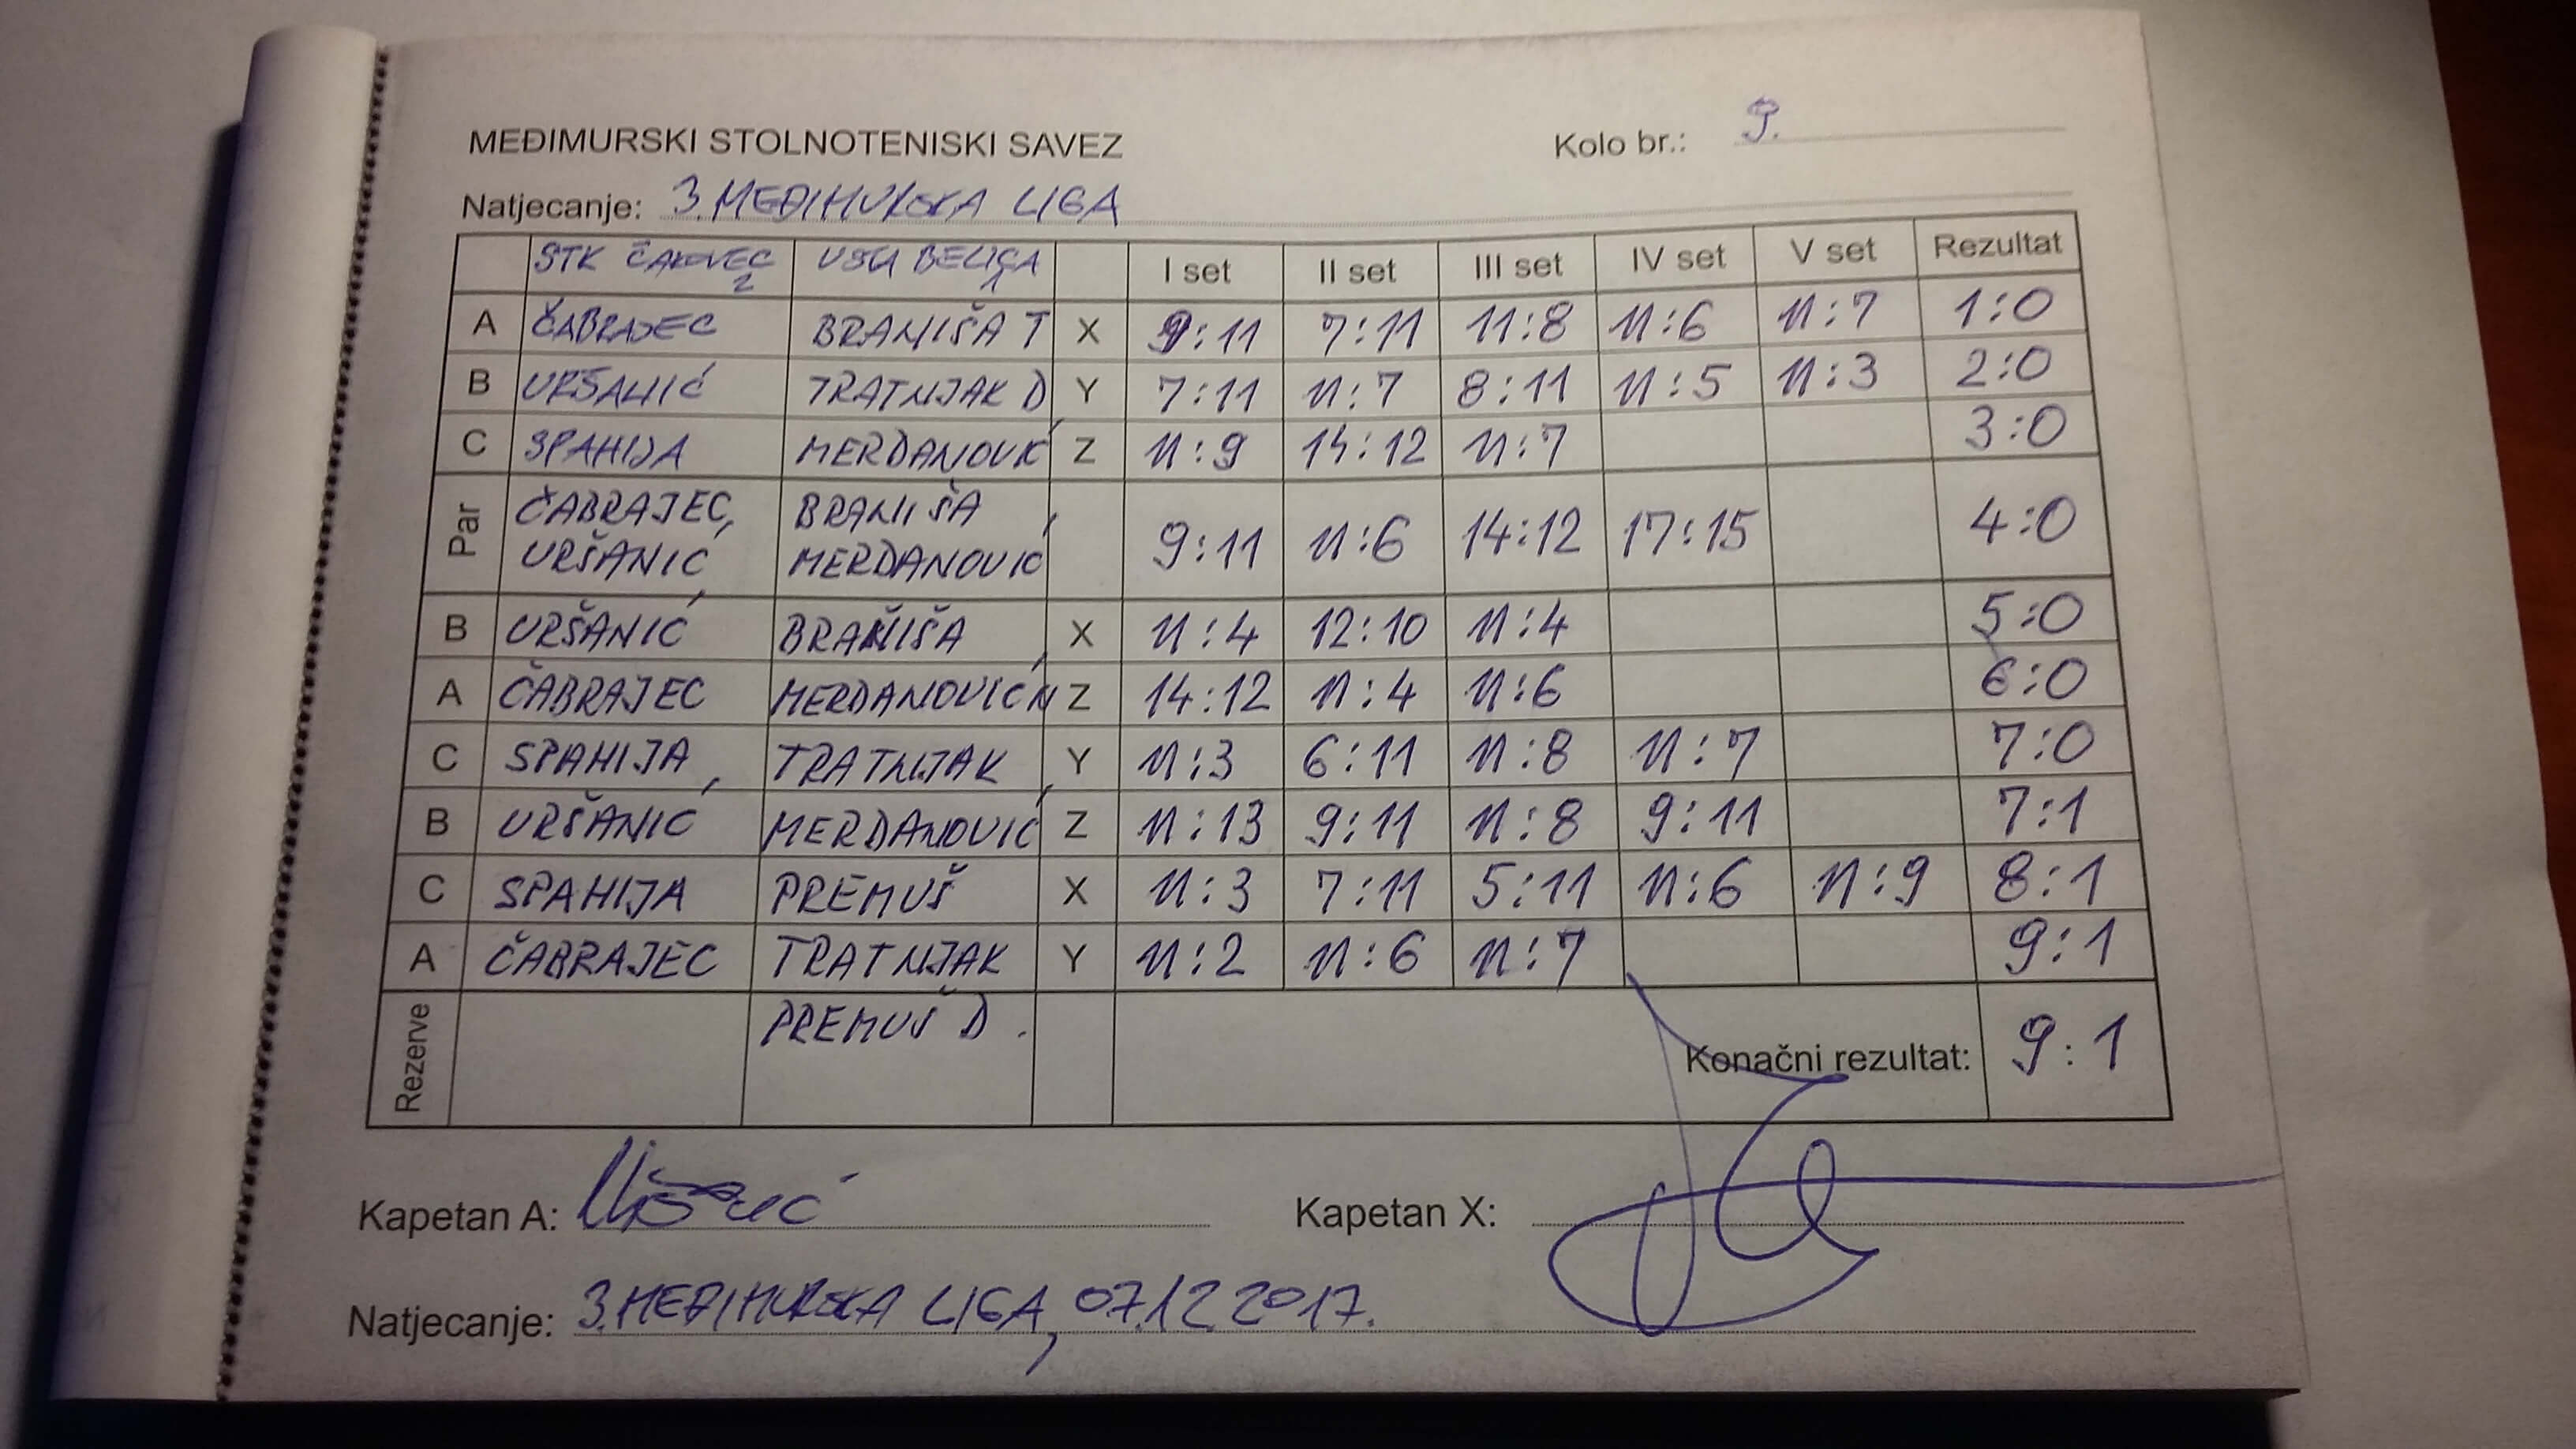 MEĐIMURSKI STOLNOTENISKI SAVEZ Kolo br.: 9.
Natjecanje: 3. MEĐIMURSKA LIGA
STK ČAKOVEC 2 BELICA 1 I set II set III set IV set V set Rezultat
A ČABRAJEC BRANIŠA T X 9:11 7:11 11:8 11:6 11:7 1:0
B URŠANIĆ TRATNJAK D Y 7:11 11:7 8:11 11:5 11:3 2:0
C SPAHIJA MERDANOVIĆ Z 11:9 14:12 11:7 3:0
Par ČABRAJEC, BRANIŠA 9:11 11:6 14:12 17:15 4:0
URŠANIĆ MERDANOVIĆ
B URŠANIĆ BRANIŠA X 11:4 12:10 11:4 5:0
A ČABRAJEC MERDANOVIĆ N Z 14:12 11:4 11:6 6:0
C SPAHIJA TRATNJAK Y 11:3 6:11 11:8 11:7 7:0
B URŠANIĆ MERDANOVIĆ Z 11:13 9:11 11:8 9:11 7:1
C SPAHIJA PREMUŠ X 11:3 7:11 5:11 11:6 11:9 8:1
A ČABRAJEC TRATNJAK Y 11:2 11:6 11:7 9:1
Rezerve PREMUŠ D. Konačni rezultat: 9:1
Kapetan A: Kapetan X:
Natjecanje: 3. MEĐIMURSKA LIGA, 07.12.2017.